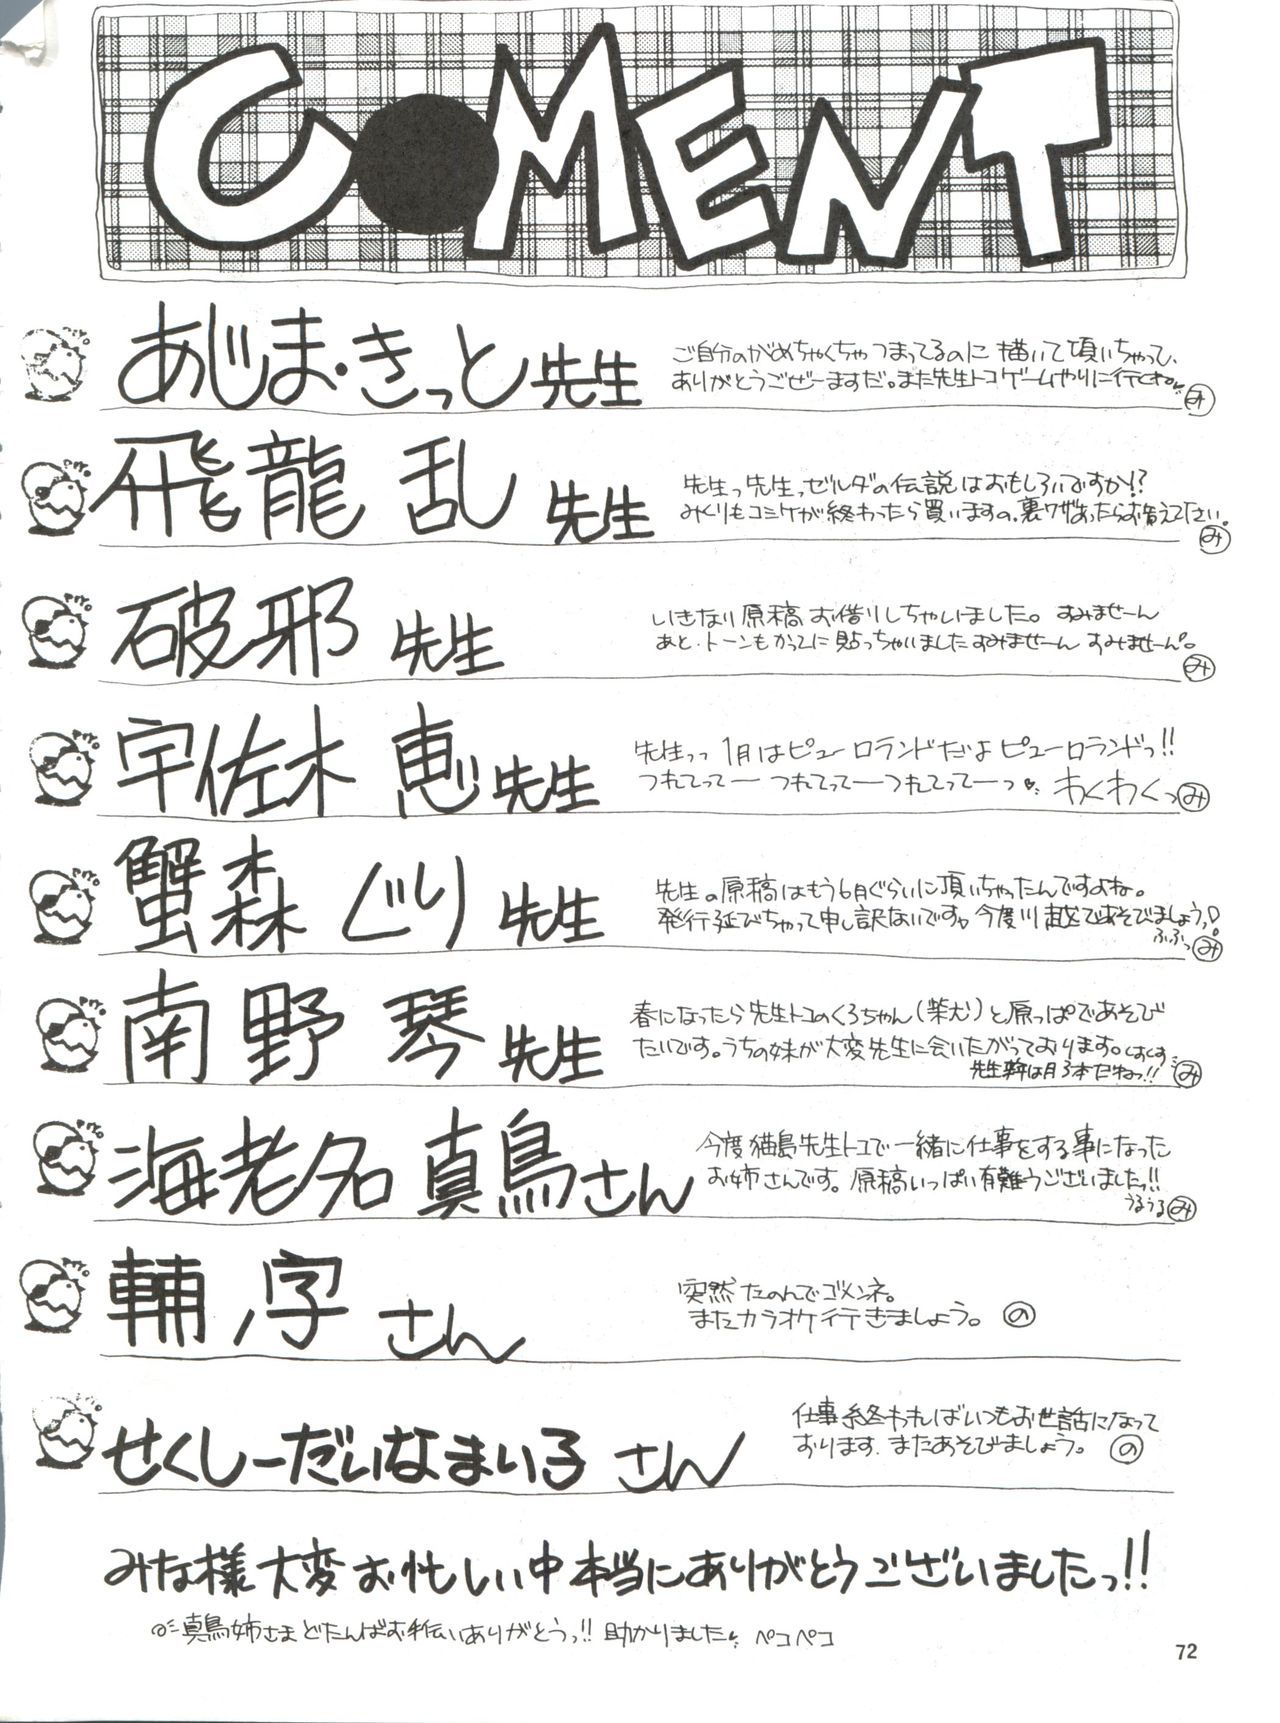 COMENT
PIYO
あじま・きっと先生
ご自分のがめちゃくちゃつまってるのに描いて頂いちゃって、
ありがとうごぜーますだ。また先生トコゲームやりに行くわ み
PIYO
飛龍 乱 先生
先生っ先生っゼルダの伝説はおもしろいですか!?
みくりもコミケが終わったら買いますの、裏ワザあったらお教えて下さい。 み
PIYO
破邪 先生
いきなり原稿お借りしちゃいました。すみませーん
あと、トーンもかってに貼っちゃいましたすみませーん すみませーん。 み
PIYO
宇佐木 恵 先生
先生っっ 1月はピューロランドだよ ピューロランドっ!!
つれてってー つれてってーつれてってーっ♥ わくわくっ み
PIYO
蟹森 ぐり 先生
先生の原稿はもう6月ぐらいに頂いちゃったんですよね。
発行延びちゃって申し訳ないです。今度川越であそびましょうっ!
ふふっ み
PIYO
南野 琴 先生
春になったら先生トコのくろちゃん(柴犬)と原っぱであそび
たいです。うちの妹が大変先生に会いたがっております。くすくす
先生 は月3本だねっ!! み
PIYO
海老名 真鳥さん
今度猫島先生トコで一緒に仕事をする事になった
お姉さんです。原稿いっぱい有難うございましたっ!!
うるうる み
PIYO
輔ノ字 さん
突然たのんでゴメンネ。
またカラオケ行きましょう。 の
PIYO
せくしーだいなまい子 さん
仕事終われればいつもお世話になって
おります。またあそびましょう。 の
みな様大変お忙しい中本当にありがとうございましたっ!!
真鳥姉さま どたんばお手伝いありがとうっ!! 助かりました♥ ペコペコ
72